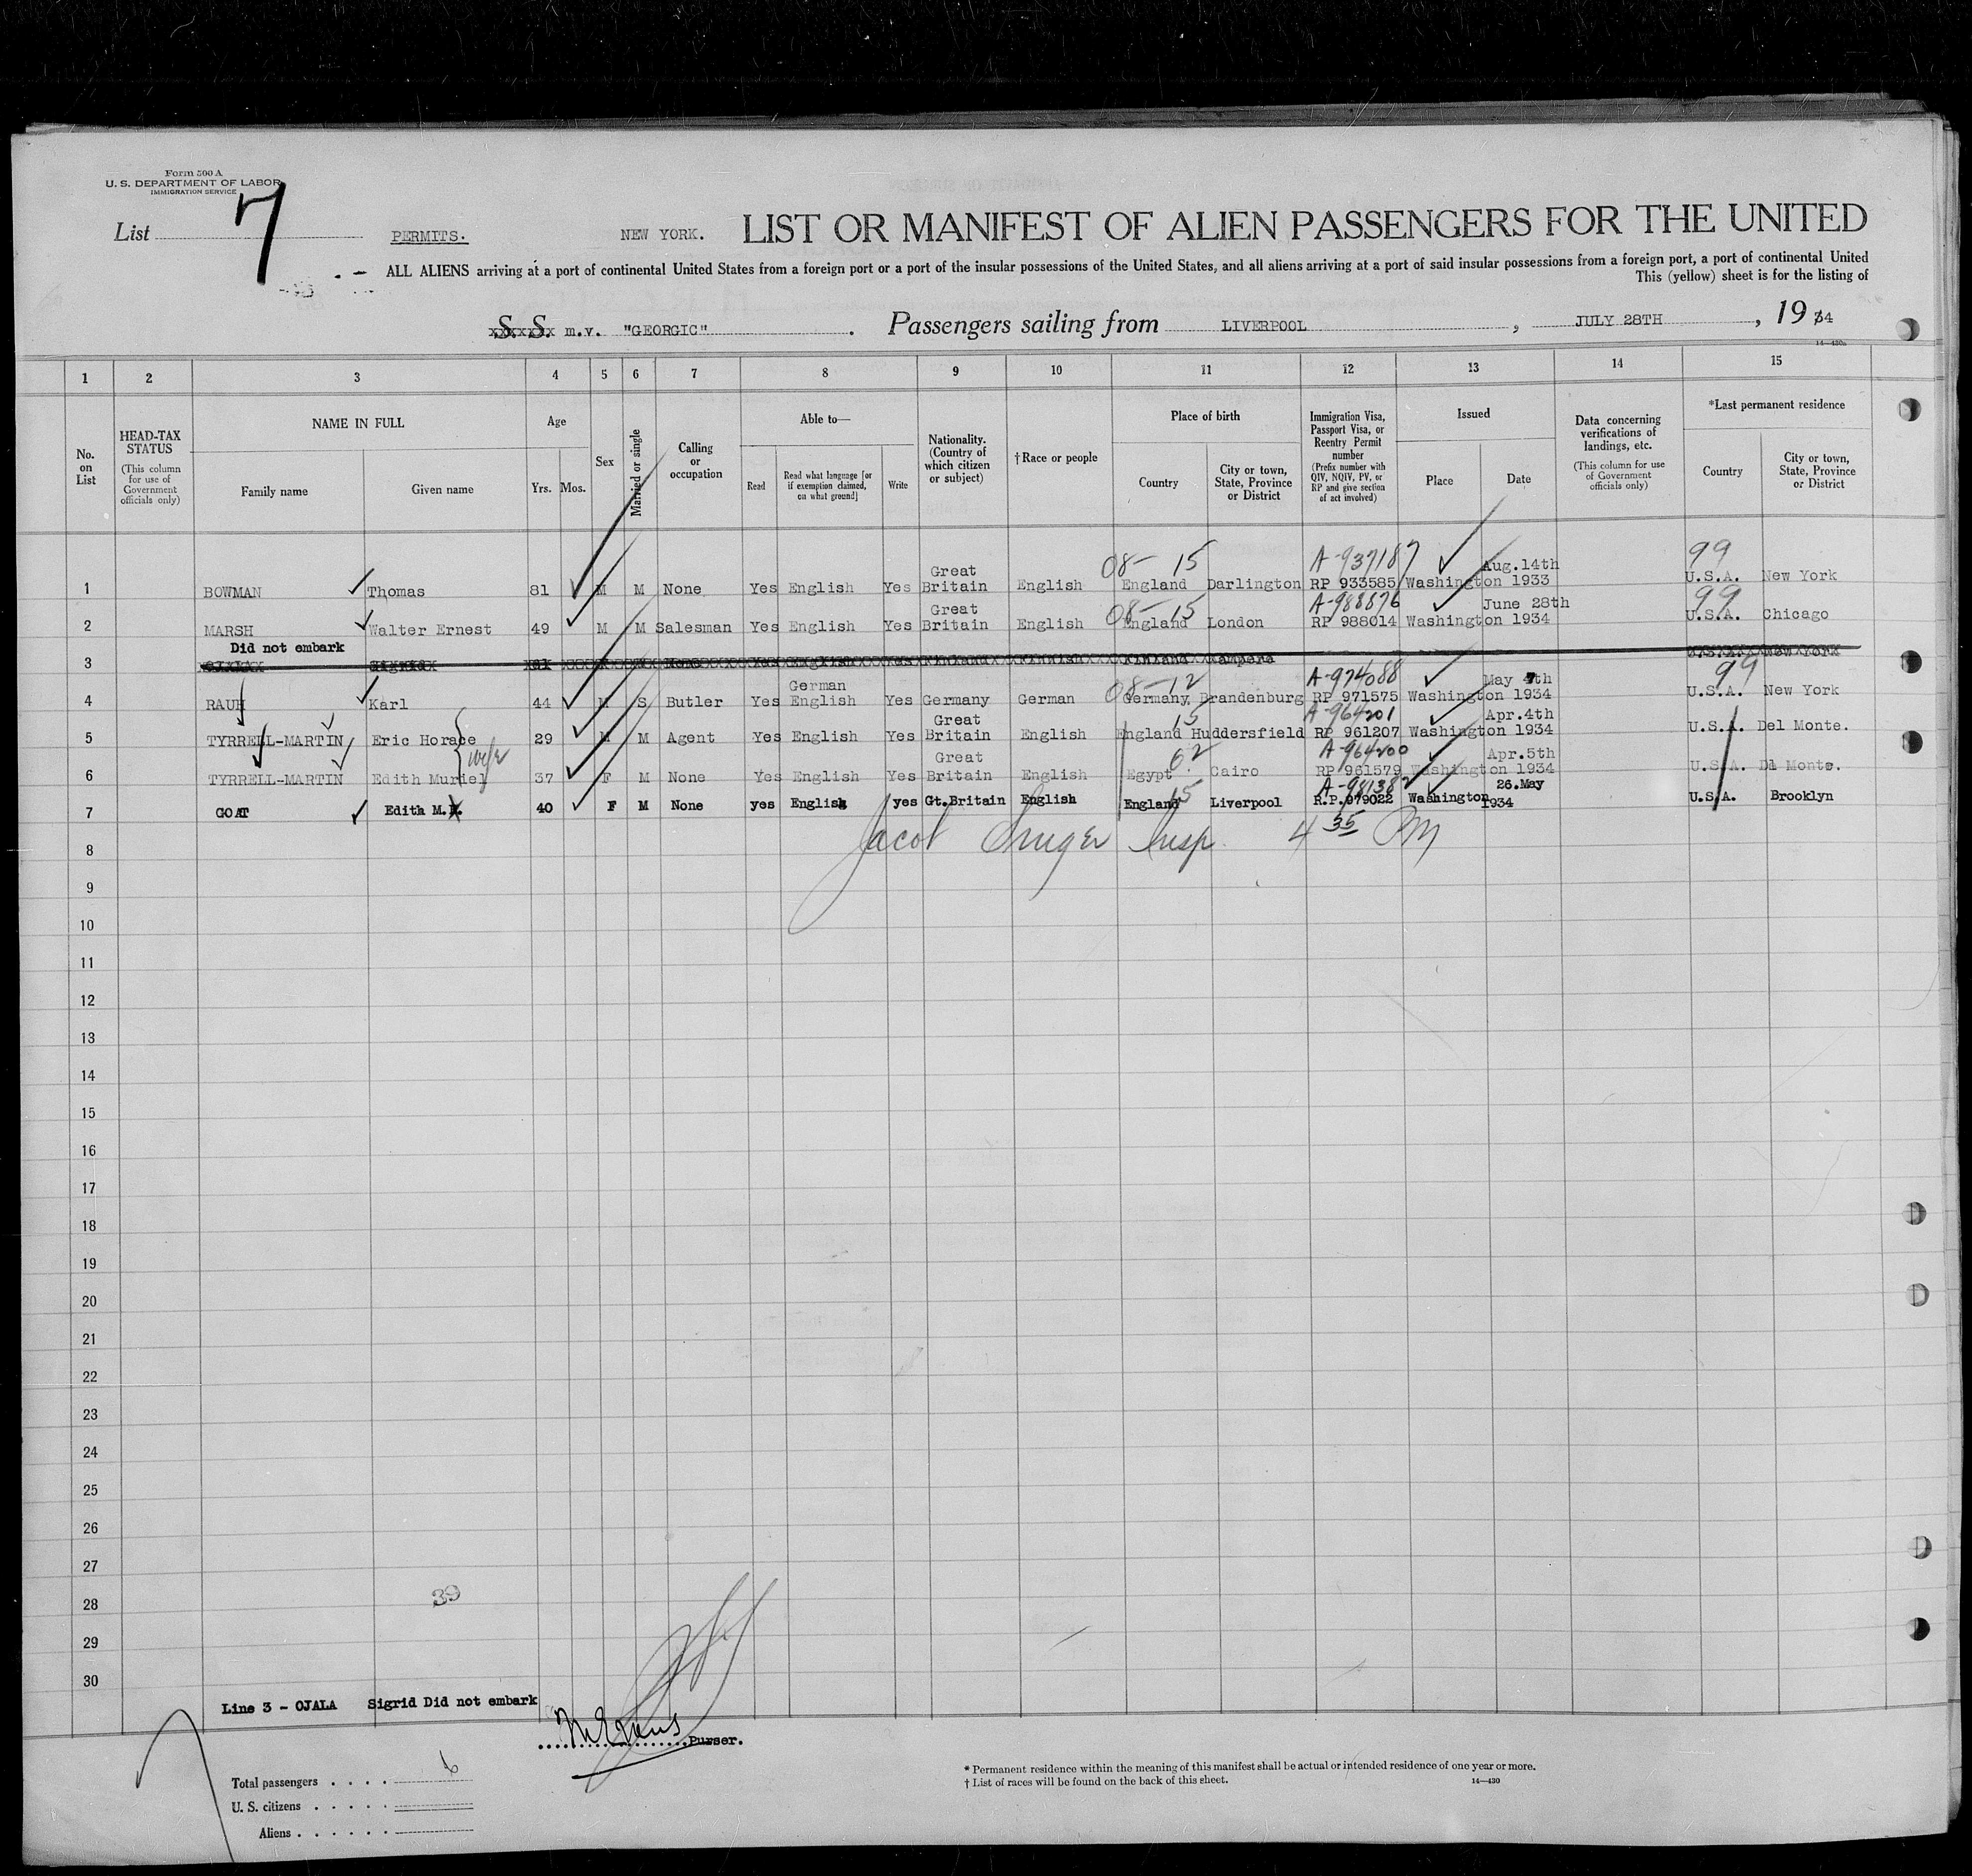 Form 500 A
U. S. DEPARTMENT OF LABOR
IMMIGRATION SERVICE
List 7 PERMITS. NEW YORK. LIST OR MANIFEST OF ALIEN PASSENGERS FOR THE UNITED
ALL ALIENS arriving at a port of continental United States from a foreign port or a port of the insular possessions of the United States, and all aliens arriving at a port of said insular possessions from a foreign port, a port of continental United
This (yellow) sheet is for the listing of
S. S. m.v. "GEORGIC" . Passengers sailing from LIVERPOOL , JULY 28TH , 19 34
14—430a
1 2 3 4 5 6 7 8 9 10 11 12 13 14 15
No. on List
HEAD-TAX STATUS (This column for use of Government officials only)
NAME IN FULL Family name Given name
Age Yrs. Mos.
Sex
Married or single
Calling or occupation
Able to— Read Read what language [or if exemption claimed, on what ground] Write
Nationality. (Country of which citizen or subject)
†Race or people
Place of birth Country City or town, State, Province or District
Immigration Visa, Passport Visa, or Reentry Permit number (Prefix number with QIV, NQIV, PV, or RP and give section of act involved)
Issued Place Date
Data concerning verifications of landings, etc. (This column for use of Government officials only)
*Last permanent residence Country City or town, State, Province or District
08— 15 A-937187 99
1 BOWMAN Thomas 81 M M None Yes English Yes Great Britain English England Darlington RP 933585 Washington Aug.14th 1933 U.S.A. New York
08—15 A-988676 99
2 MARSH Walter Ernest 49 M M Salesman Yes English Yes Great Britain English England London RP 988014 Washington June 28th 1934 U.S.A. Chicago
Did not embark
3 Finland Kampere New York
08—12 A-974088 99
4 RAUH Karl 44 M S Butler Yes German English Yes Germany German Germany Brandenburg RP 971575 Washington May 4th 1934 U.S.A. New York
15 A-964201
5 TYRRELL-MARTIN Eric Horace 29 M M Agent Yes English Yes Great Britain English England Huddersfield RP 961207 Washington Apr.4th 1934 U.S.A. Del Monte.
wife 62 A-964200
6 TYRRELL-MARTIN Edith Muriel 37 F M None Yes English Yes Great Britain English Egypt Cairo RP 961579 Washington Apr.5th 1934 U.S.A. Dl Monte.
15 A-981382
7 GOAT Edith M. 40 F M None yes English yes Gt.Britain English England Liverpool R.P.979022 Washington 26.May 1934 U.S.A. Brooklyn
Jacob Insp 4 35 PM
8
9
10
11
12
13
14
15
16
17
18
19
20
21
22
23
24
25
26
27
28 39
29
30
Line 3 - OJALA Sigrid Did not embark
Purser.
Total passengers . . . . 6
U. S. citizens . . . . .
Aliens . . . . . .
* Permanent residence within the meaning of this manifest shall be actual or intended residence of one year or more.
† List of races will be found on the back of this sheet. 14—430